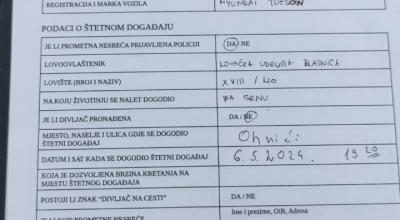 REGISTRACIJA I MARKA VOZILA HYUNDAI TUCSON
PODACI O ŠTETNOM DOGAĐAJU
JE LI PROMETNA NESREĆA PRIJAVLJENA POLICIJI DA / NE
LOVOOVLAŠTENIK LOVAČKA UDRUGA BLATNICA
LOVIŠTE (BROJ I NAZIV) XVIII / 120
NA KOJU ŽIVOTINJU SE NALET DOGODIO NA SRNU
JE LI DIVLJAČ PRONAĐENA DA / NE
MJESTO, NASELJE I ULICA GDJE SE DOGODIO
ŠTETNI DOGAĐAJ Ohnići
DATUM I SAT KADA SE DOGODIO ŠTETNI DOGAĐAJ 6.5.2024. 19 20
KOJA JE DOZVOLJENA BRZINA KRETANJA NA
MJESTU ŠTETNOG DOGAĐAJA
POSTOJI LI ZNAK "DIVLJAČ NA CESTI" DA / NE
Ime i prezime, OIB, Adresa
JE LI KOD PROMETNE NESREĆE